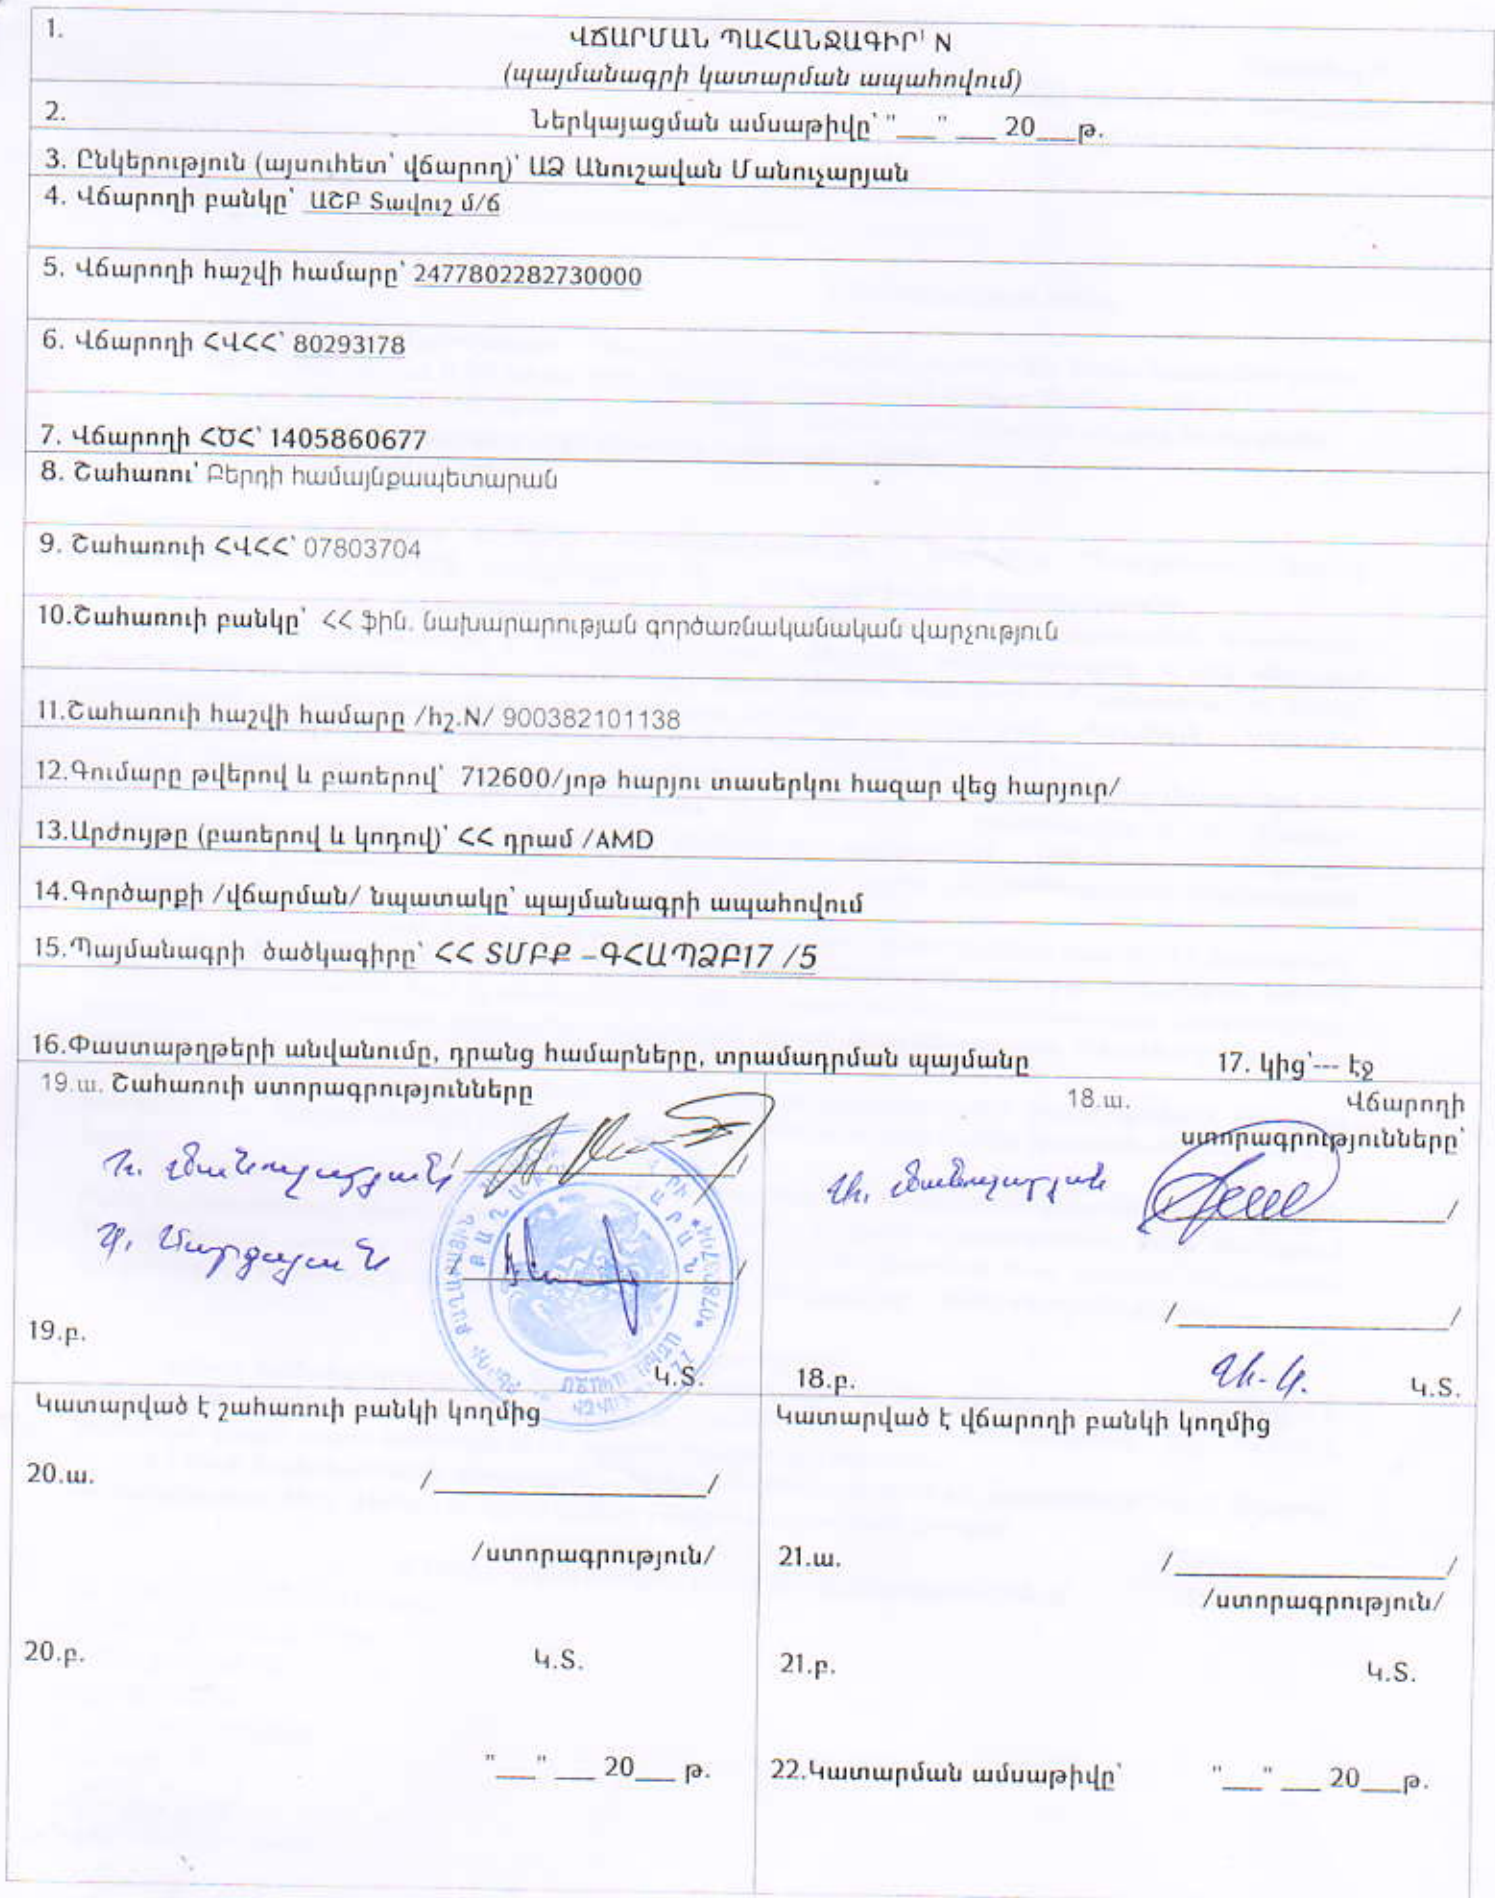 1.
ՎՃԱՐՄԱՆ ՊԱՀԱՆՋԱԳԻՐ¹ N
(պայմանագրի կատարման ապահովում)
2.
Ներկայացման ամսաթիվը՝ "___" ___ 20___թ.
3. Ընկերություն (այսուհետ՝ վճարող)՝ ԱՁ Անուշավան Մանուչարյան
4. Վճարողի բանկը՝ ԱՇԲ Տավուշ մ/ճ
5. Վճարողի հաշվի համարը՝ 2477802282730000
6. Վճարողի ՀՎՀՀ՝ 80293178
7. Վճարողի ՀԾՀ՝ 1405860677
8. Շահառու՝ Բերդի համայնքապետարան
9. Շահառուի ՀՎՀՀ՝ 07803704
10.Շահառուի բանկը՝ ՀՀ ֆին. նախարարության գործառնականական վարչություն
11.Շահառուի հաշվի համարը /հշ.N/ 900382101138
12.Գումարը թվերով և բառերով՝ 712600/յոթ հարյու տասերկու հազար վեց հարյուր/
13.Արժույթը (բառերով և կոդով)՝ ՀՀ դրամ /AMD
14.Գործարքի /վճարման/ նպատակը՝ պայմանագրի ապահովում
15.Պայմանագրի ծածկագիրը՝ ՀՀ ՏՄԲՔ –ԳՀԱՊՁԲ17 /5
16.Փաստաթղթերի անվանումը, դրանց համարները, տրամադրման պայմանը
17. կից՝--- էջ
19.ա. Շահառուի ստորագրությունները
Հ. Մանուչարյան /_______________/
Ա. Սարգսյան /_______________/
19.բ.
Կ.Տ.
18.ա. Վճարողի
ստորագրությունները՝
Ան. Մանուչարյան _______________/
/_______________/
18.բ.
Կ.Տ.
Կատարված է շահառուի բանկի կողմից
20.ա. /_______________/
/ստորագրություն/
20.բ.
Կ.Տ.
"___" ___ 20___ թ.
Կատարված է վճարողի բանկի կողմից
21.ա. /_______________/
/ստորագրություն/
21.բ.
Կ.Տ.
22.Կատարման ամսաթիվը՝ "___" ___ 20___թ.